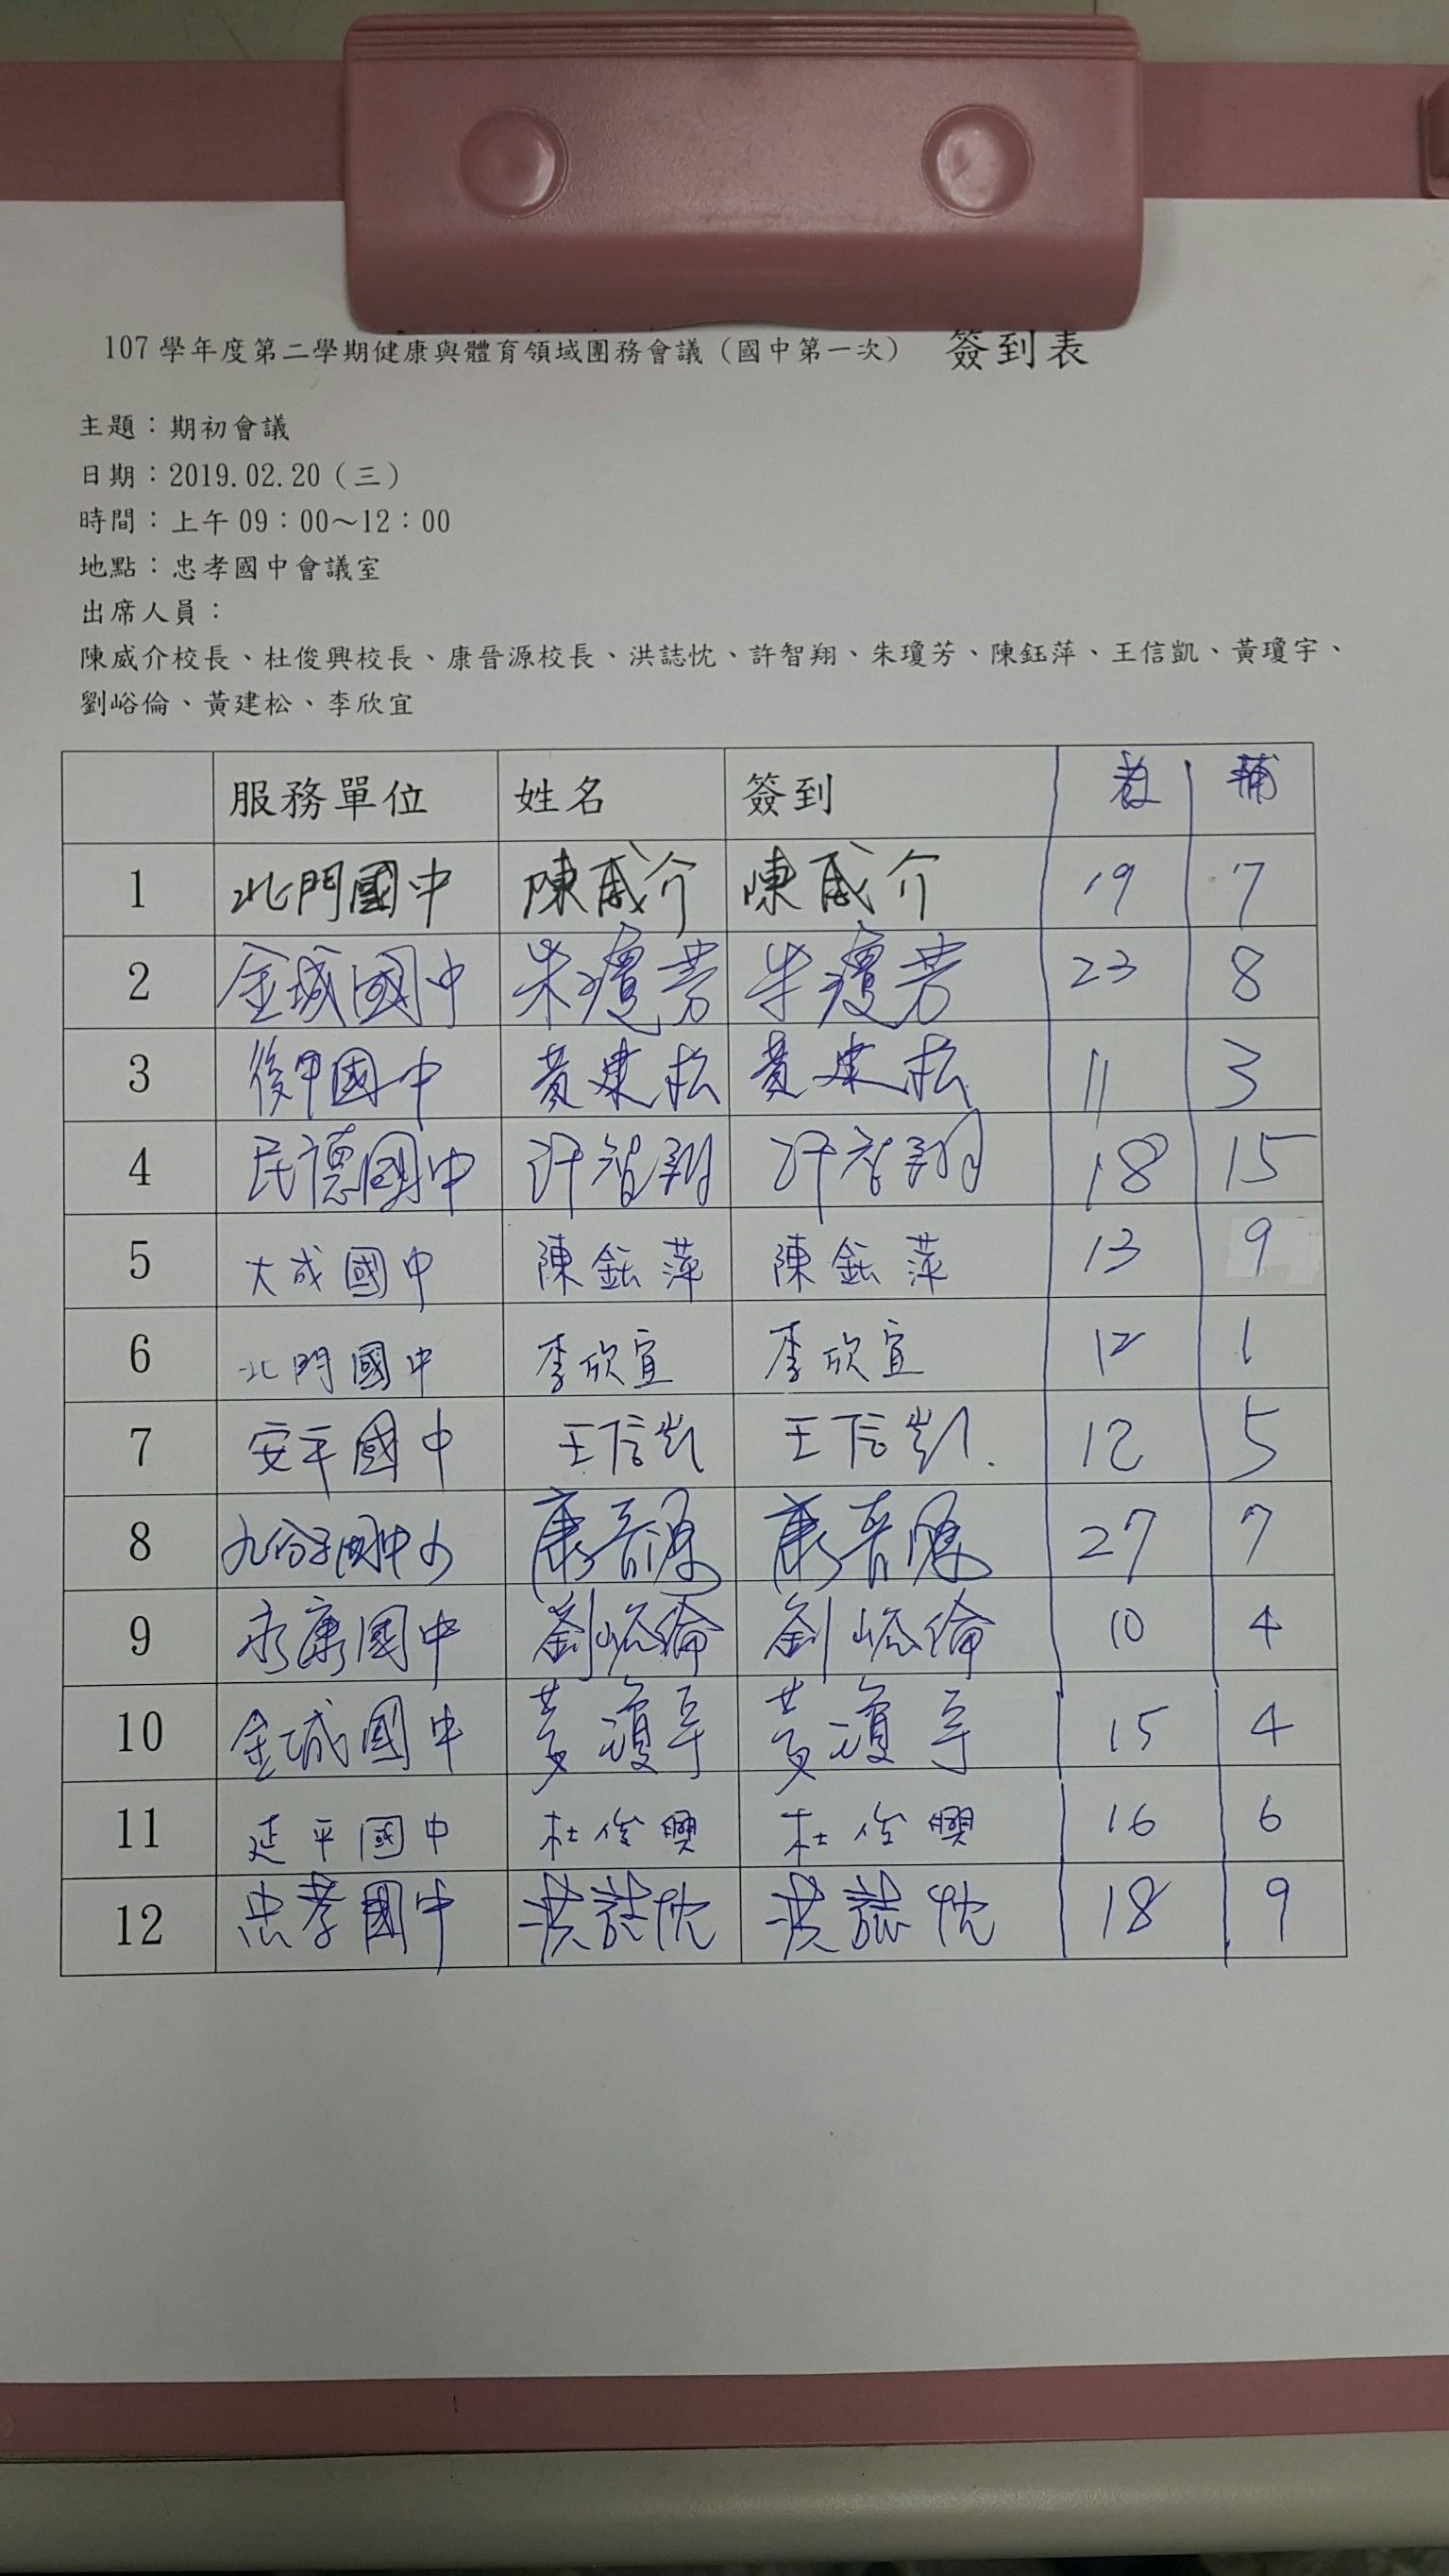 107 學年度第二學期健康與體育領域團務會議（國中第一次） 簽到表
主題：期初會議
日期：2019.02.20（三）
時間：上午 09：00～12：00
地點：忠孝國中會議室
出席人員：
陳威介校長、杜俊興校長、康晉源校長、洪誌忱、許智翔、朱瓊芳、陳鈺萍、王信凱、黃瓊宇、
劉峪倫、黃建松、李欣宜
服務單位 姓名 簽到 輔
1 北門國中 陳威介 陳威介 19 7
2 金城國中 朱瓊芳 朱瓊芳 23 8
3 後甲國中 黃建松 黃建松 11 3
4 民德國中 許智翔 許智翔 18 15
5 大成國中 陳鈺萍 陳鈺萍 13 9
6 北門國中 李欣宜 李欣宜 12 1
7 安平國中 王信凱 王信凱. 12 5
8 九份子國中小 康晉源 康晉源 27 7
9 永康國中 劉峪倫 劉峪倫 10 4
10 金城國中 黃瓊宇 黃瓊宇 15 4
11 延平國中 杜俊興 杜俊興 16 6
12 忠孝國中 洪誌忱 洪誌忱 18 9